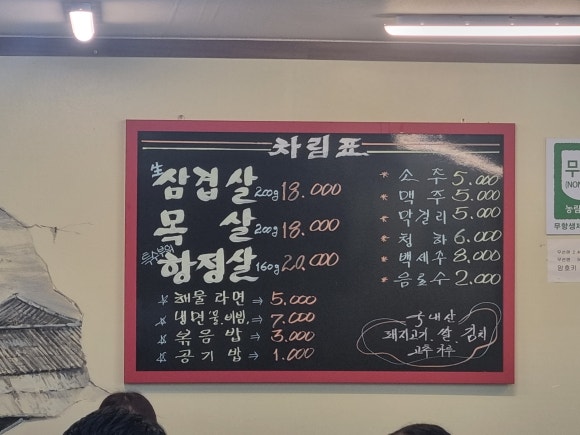 차림표
生 삼겹살 200g 18.000
목 살 200g 18.000
특수부위 항정살 160g 20.000
☆ 해물 라면 ⇒ 5.000
☆ 냉면(물.비빔) ⇒ 7.000
☆ 볶음밥 ⇒ 3.000
☆ 공기밥 ⇒ 1.000
* 소주 5.000
* 맥주 5.000
* 막걸리 5.000
* 청하 6.000
* 백세주 8.000
* 음료수 2.000
국내산
돼지고기. 쌀. 김치
고추가루
무
(NON
농림
무항생제